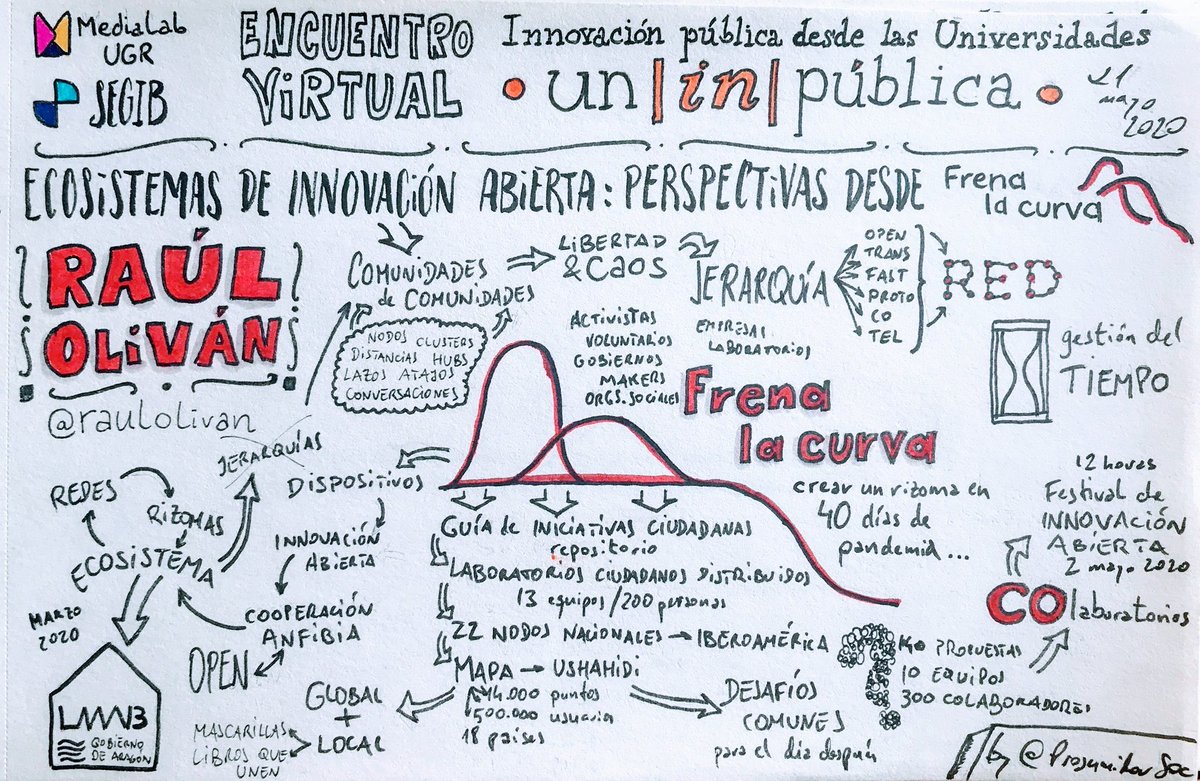 MediaLab
UGR
SEGIB
ENCUENTRO
VIRTUAL
Innovación pública desde las Universidades
un|in|pública
21
mayo
2020
ECOSISTEMAS DE INNOVACIÓN ABIERTA: PERSPECTIVAS DESDE
Frena
la curva
RAÚL
OLIVÁN
@raulolivan
COMUNIDADES
de COMUNIDADES
NODOS CLUSTERS
DISTANCIAS HUBS
LAZOS ATAJOS
CONVERSACIONES
LIBERTAD
& CAOS
JERARQUÍA
OPEN
TRANS
FAST
PROTO
CO
TEL
RED
ACTIVISTAS
VOLUNTARIOS
GOBIERNOS
MAKERS
ORGS. SOCIALES
EMPRESAS
LABORATORIOS
gestión del
TIEMPO
Frena
la curva
JERARQUÍAS
REDES
RIZOMAS
ECOSISTEMA
DISPOSITIVOS
INNOVACIÓN
ABIERTA
COOPERACIÓN
ANFIBIA
OPEN
MARZO
2020
GOBIERNO
DE ARAGÓN
GUÍA de INICIATIVAS CIUDADANAS
repositorio
LABORATORIOS CIUDADANOS DISTRIBUIDOS
13 equipos/200 personas
22 NODOS NACIONALES → IBEROAMÉRICA
MAPA → USHAHIDI
500.000 usuaria
18 países
GLOBAL
+
LOCAL
MASCARILLAS
LIBROS QUE
UNEN
DESAFÍOS
COMUNES
para el día después
crear un rizoma en
40 días de
pandemia...
12 horas
Festival de
INNOVACIÓN
ABIERTA
2 mayo 2020
COlaboratorios
PROPUESTAS
10 EQUIPOS
300 COLABORADORES
by